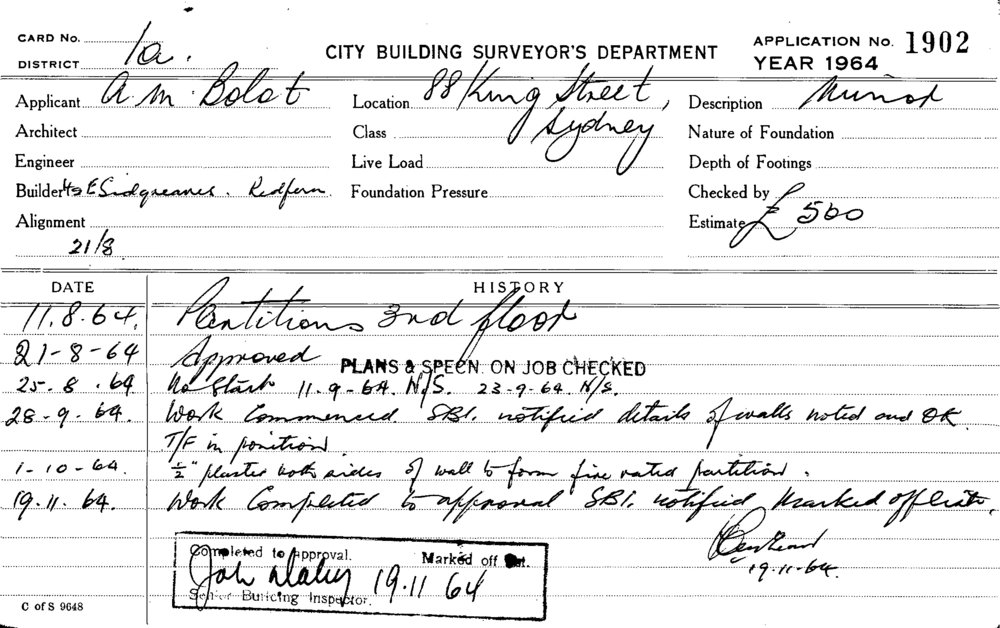 CARD No.
DISTRICT 1a.
CITY BUILDING SURVEYOR'S DEPARTMENT
APPLICATION No. 1902
YEAR 1964
Applicant A M Bolot
Location 88 King Street, Sydney
Description Minor
Architect
Class
Nature of Foundation
Engineer
Live Load
Depth of Footings
Builder E Sidgreaves. Redfern
Foundation Pressure
Checked by
Alignment
Estimate £ 500
21/8
DATE HISTORY
11.8.64. Partitions 3rd floor
21-8-64 Approved
PLANS & SPECN. ON JOB CHECKED
25-8.64 No Start 11-9-64. N/S. 23-9-64. N/S.
28-9-64. Work Commenced. SBI. notified details of walls noted and OK
T/F in position.
1-10-64. ½" plaster both sides of wall to form fire rated partition.
19.11.64. Work Completed to approval SBI. notified Marked off
19-11-64.
Completed to approval. Marked off
19.11 64
Senior Building Inspector.
C of S 9648